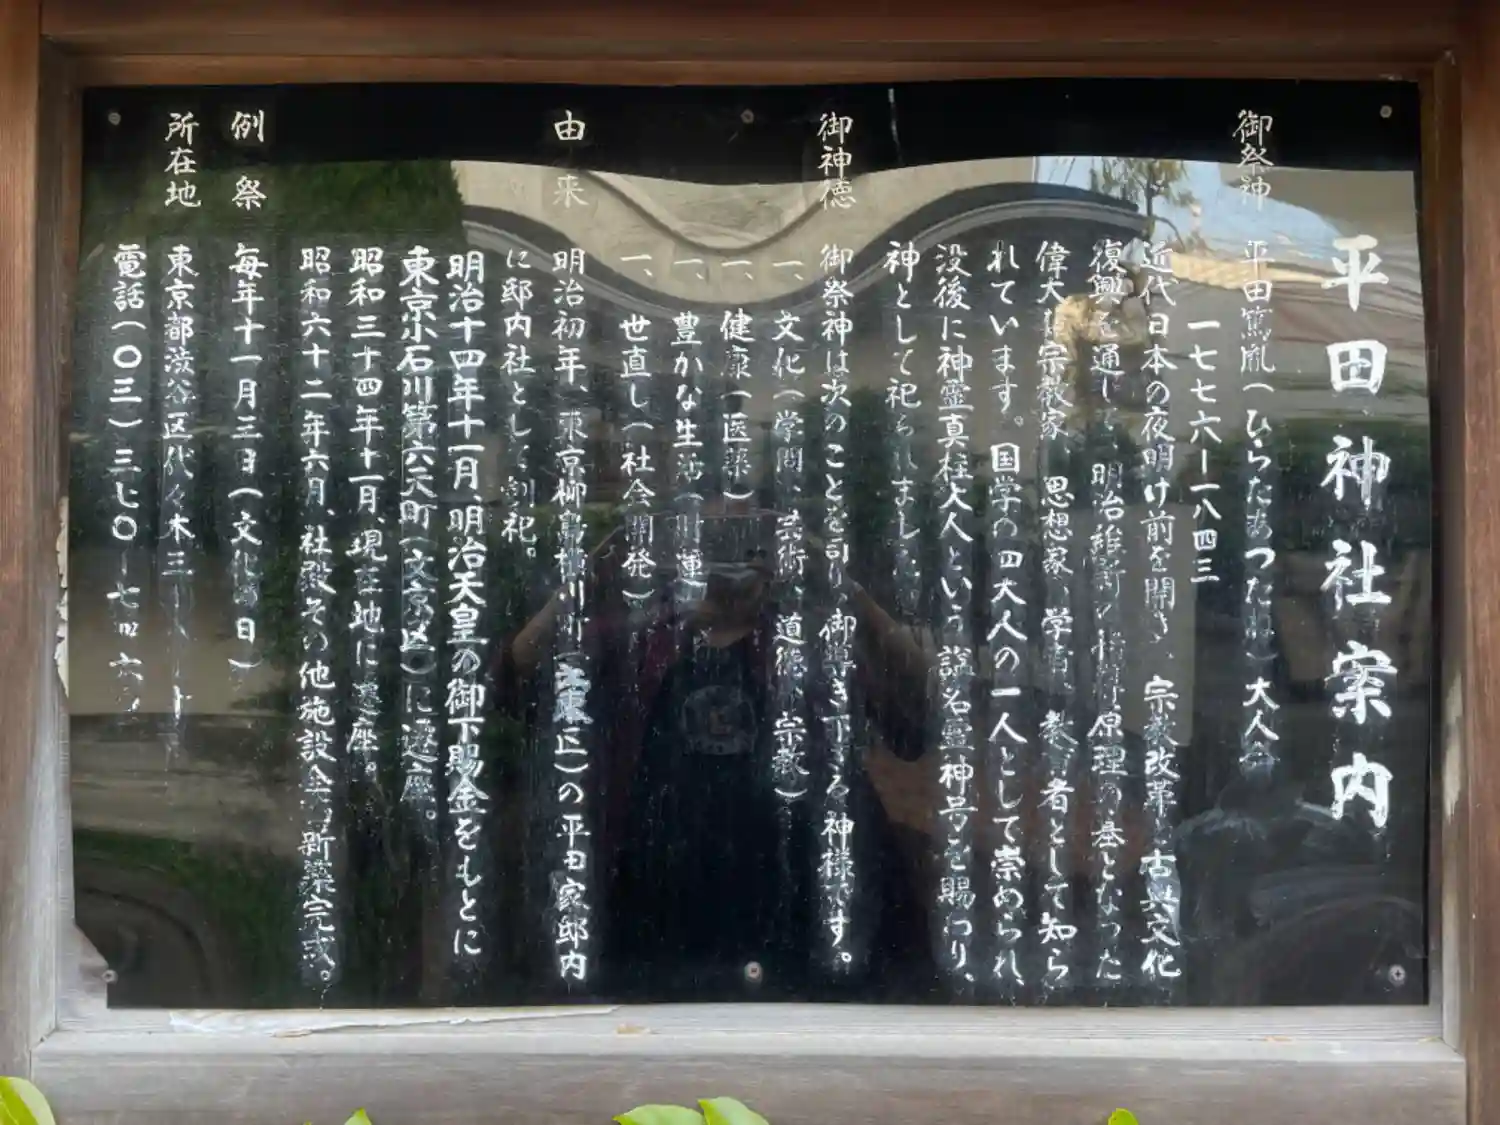 平田神社案内
御祭神 平田篤胤(ひらたあつたね)大人命
一七七六ー一八四三
近代日本の夜明け前を開き、宗教改革、古典文化
復興を通して、明治維新の 原理の基となった
偉大な宗教家、思想家、学者、教育者として知ら
れています。国学の四大人の一人として崇められ、
没後に神霊真柱大人という諡名霊神号を賜わり、
神として祀られました
御神徳 御祭神は次のことを司り、御導き下さる神様です。
一、文化(学問、芸術、道徳、宗教)
一、健康(医薬)
一、豊かな生活(財運)
一、世直し(社会開発)
由来 明治初年、東京柳島横川町(区)の平田家邸内
に邸内社として創祀。
明治十四年十一月、明治天皇の御下賜金をもとに
東京小石川第六天町(文京区)に遷座。
昭和三十四年十一月、現在地に遷座。
昭和六十二年六月、社殿その他施設全 新築完成。
例祭 毎年十一月三日(文化の日)
所在地 東京都渋谷区代々木三ー
電話(〇三)三七〇ー七